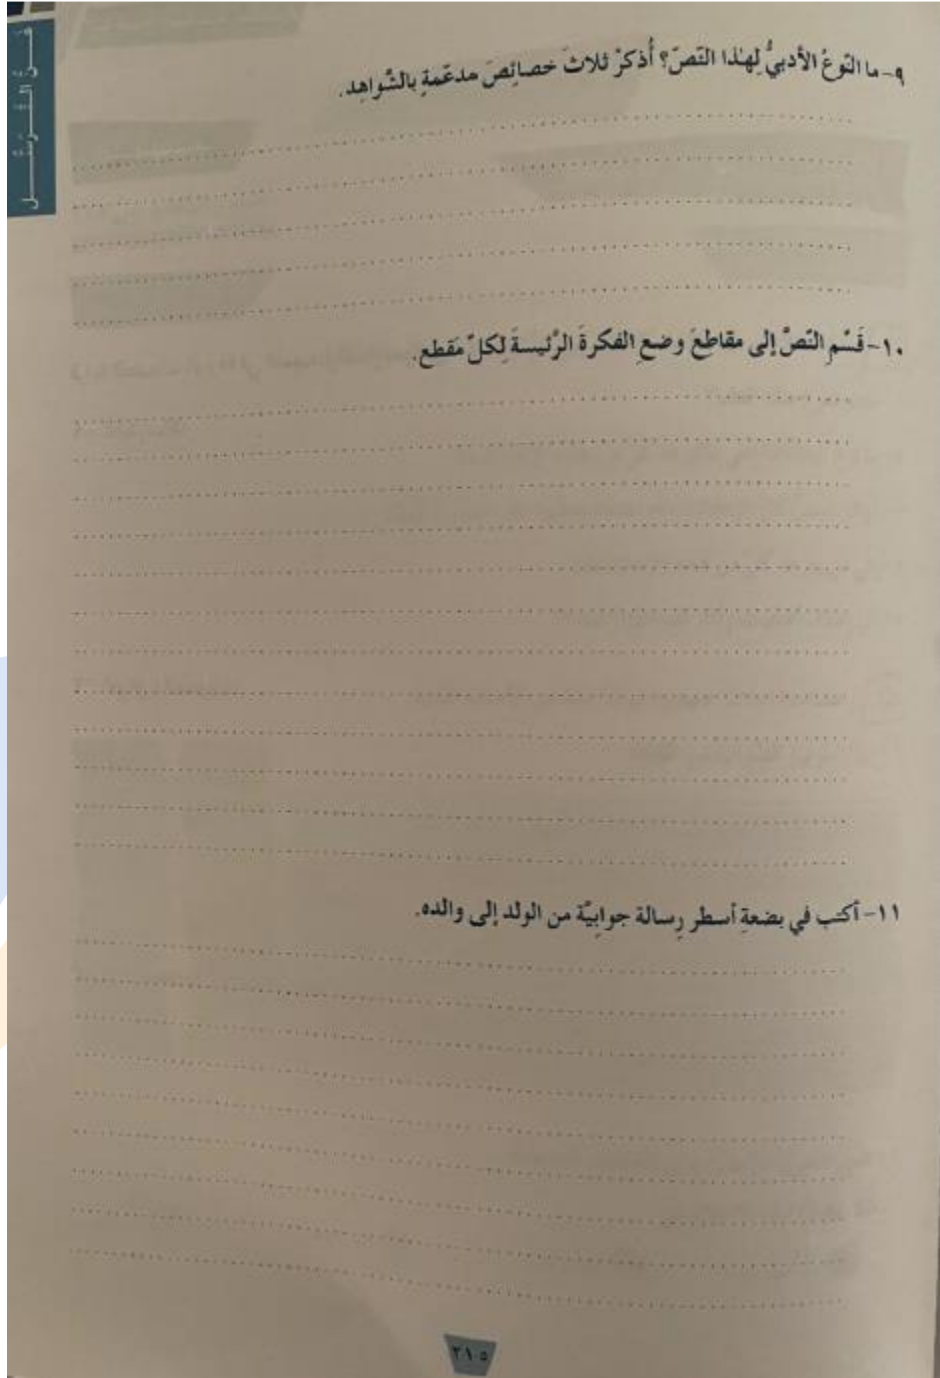 فَنُّ التَّرَسُّلِ
٩- ما النّوعُ الأدبيُّ لِهٰذا النّصّ؟ أُذكرْ ثلاثَ خصائِصَ مدعّمةٍ بالشّواهِد.
١٠- قَسِّمِ النّصَّ إلى مقاطِعَ وضعِ الفكرةَ الرّئيسةَ لِكلّ مَقطع.
١١- أكتب في بضعةِ أسطر رِسالة جوابيّة من الولد إلى والده.
٢١٥